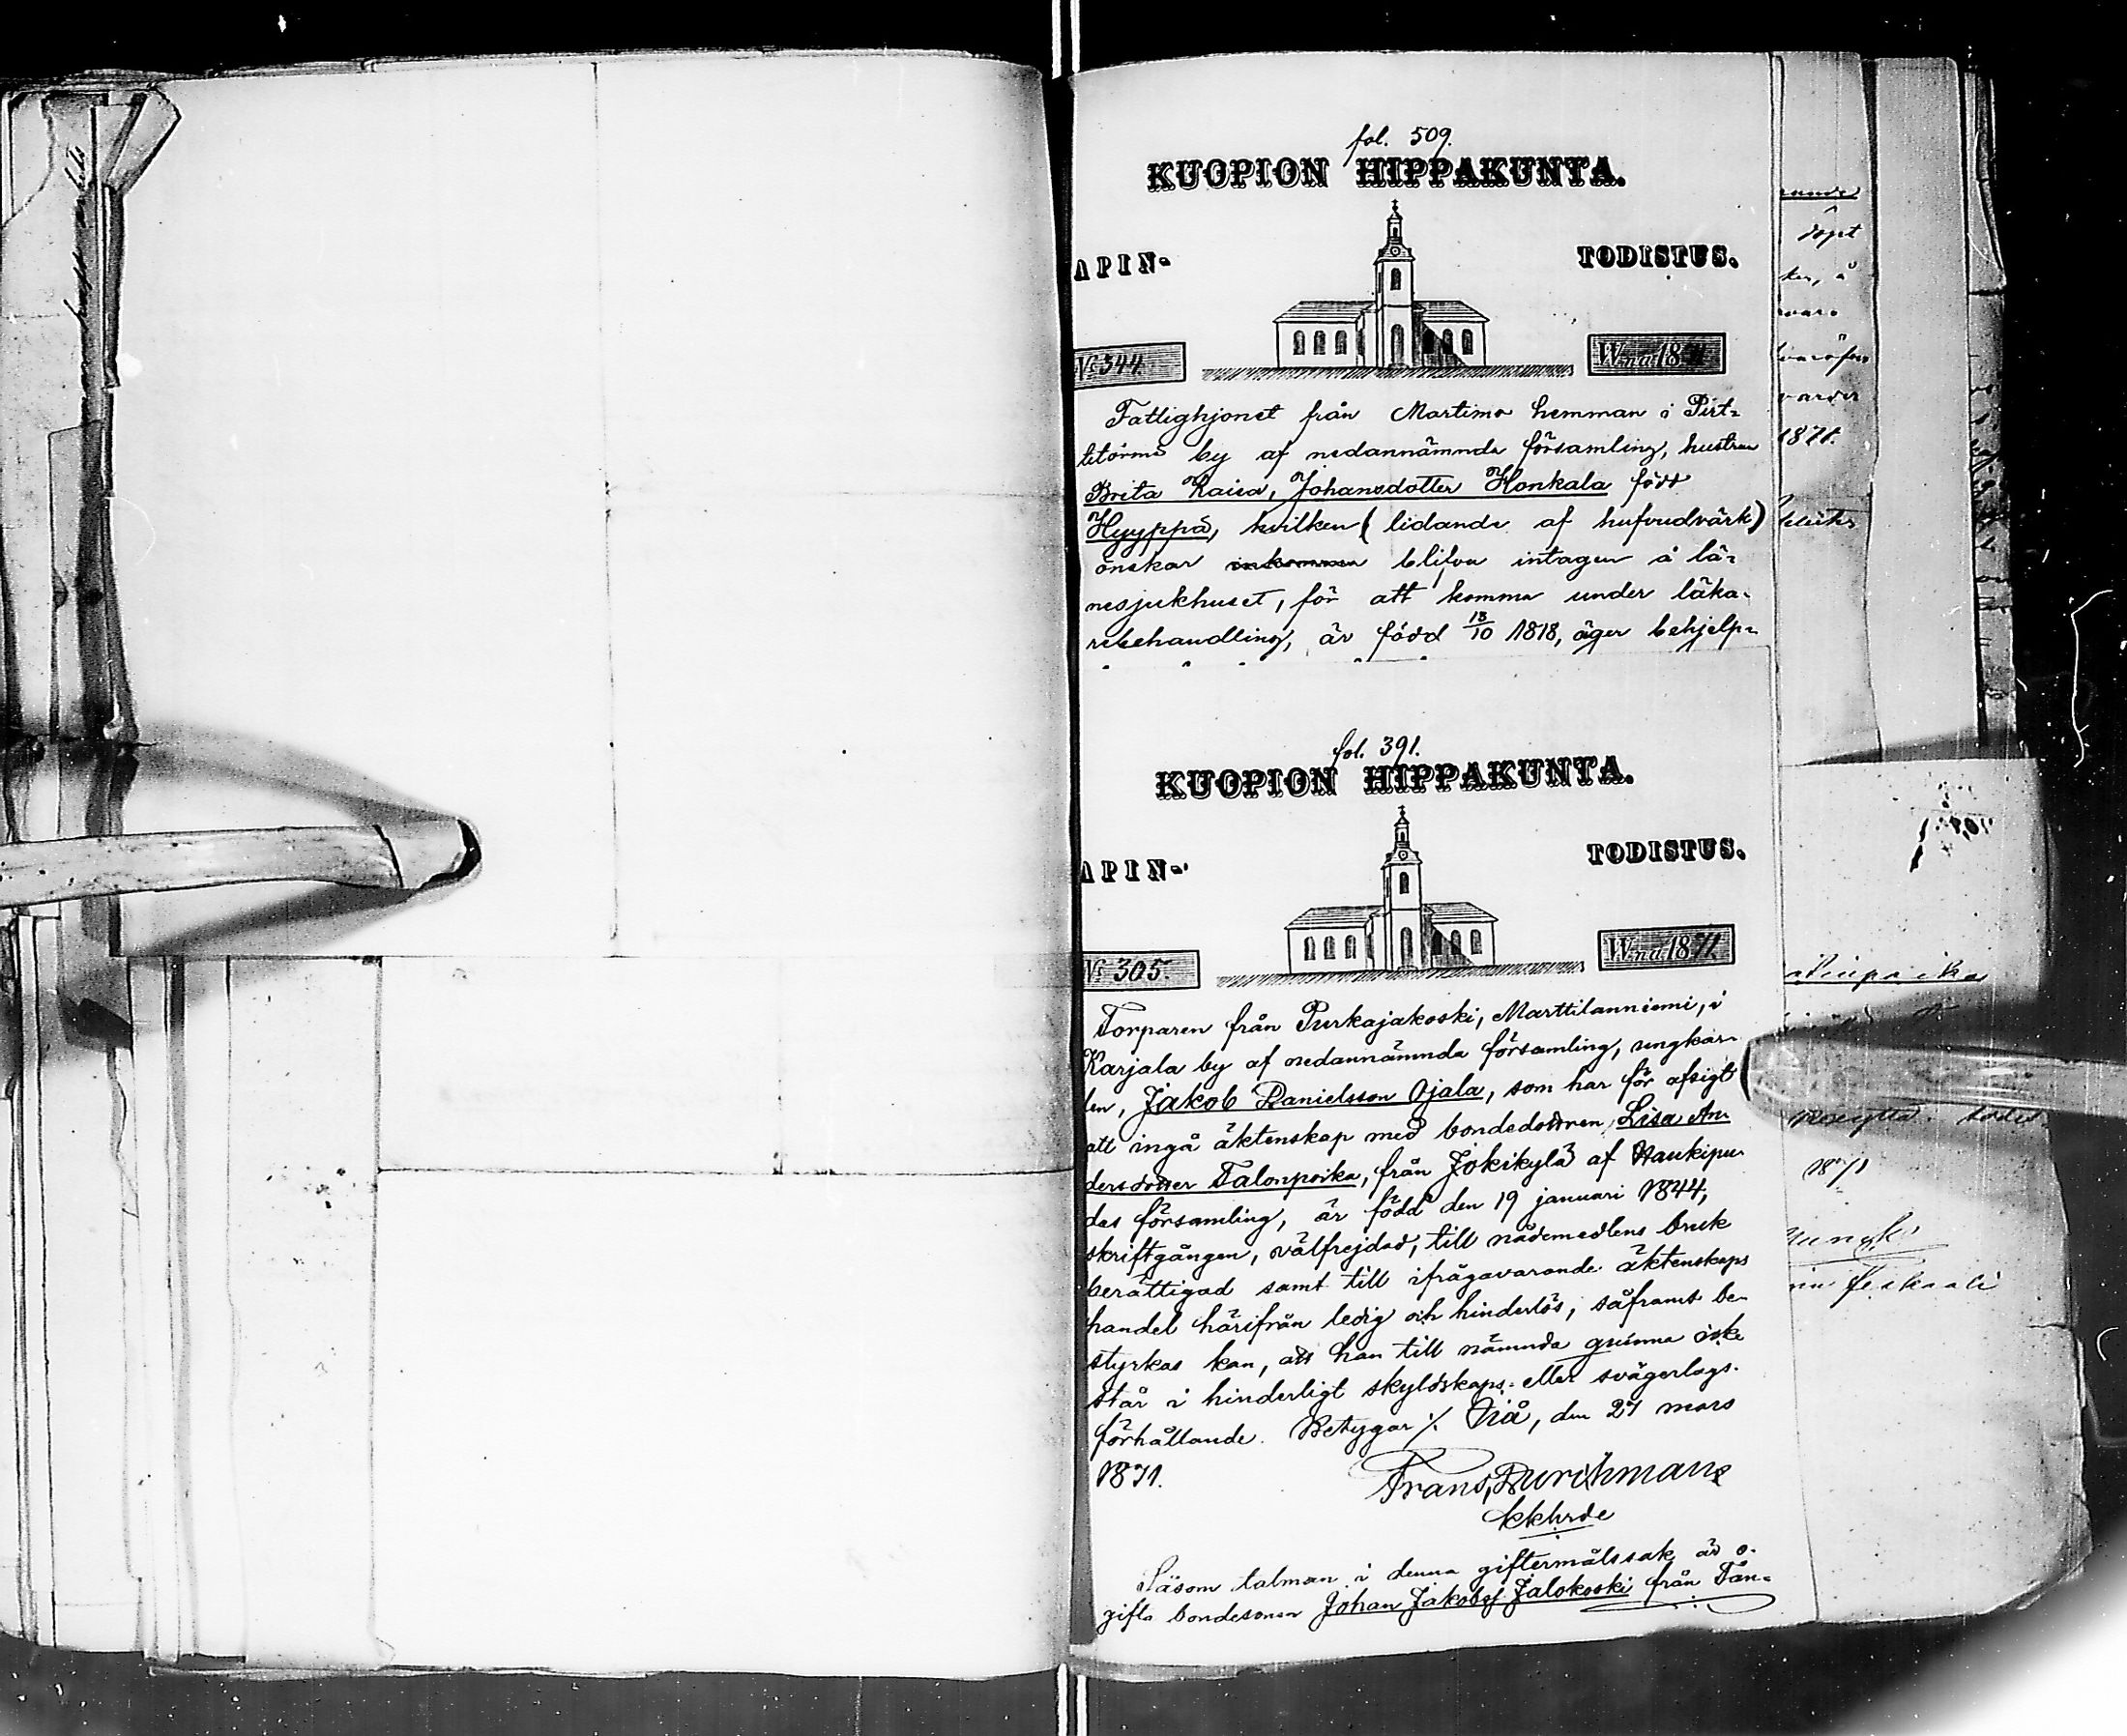 fol. 509.
KUOPION HIPPAKUNTA.
APIN-
TODISTUS.
№ 344.
W:na 1871
Fattighjonet från Martimo hemman i Pirt-
titörmä by af nedannämnda församling, hustrun
Brita Kaisa, Johansdotter Honkala född
Hyyppä, hvilken (lidande af hufvudvärk)
önskar inkommen blifva intagen å lä-
nesjukhuset, för att komma under läka-
rebehandling, är född 13/10 1818, äger behjelp-
fol. 391.
KUOPION HIPPAKUNTA.
APIN-
TODISTUS.
№ 305.
W:na 1871.
Torparen från Purkajakoski, Marttilanniemi, i
Karjala by af nedannämnda församling, ungkar-
len, Jakob Danielsson Ojala, som har för afsigt
att ingå äktenskap med bondedottren, Lisa An-
dersdotter Talonpoika, från Jokikylä af Haukipu-
das församling, är född den 19 januari 1844,
skriftgången, välfrejdad, till nådemedlens bruk
berättigad samt till ifrågavarande äktenskaps
handel härifrån ledig och hinderlös, såframt be-
styrkas kan, att han till nämnda qvinna icke
står i hinderligt skyldskaps- eller svågerlags-
förhållande. Betygar ./. Ijå, den 27 mars
1871.
Frans, Durchman
kkhrde
Såsom talman i denna giftermålssak är o-
gifta bondesonen Johan Jakobsf Jalokoski från Tan-
döpt
1871.
1871